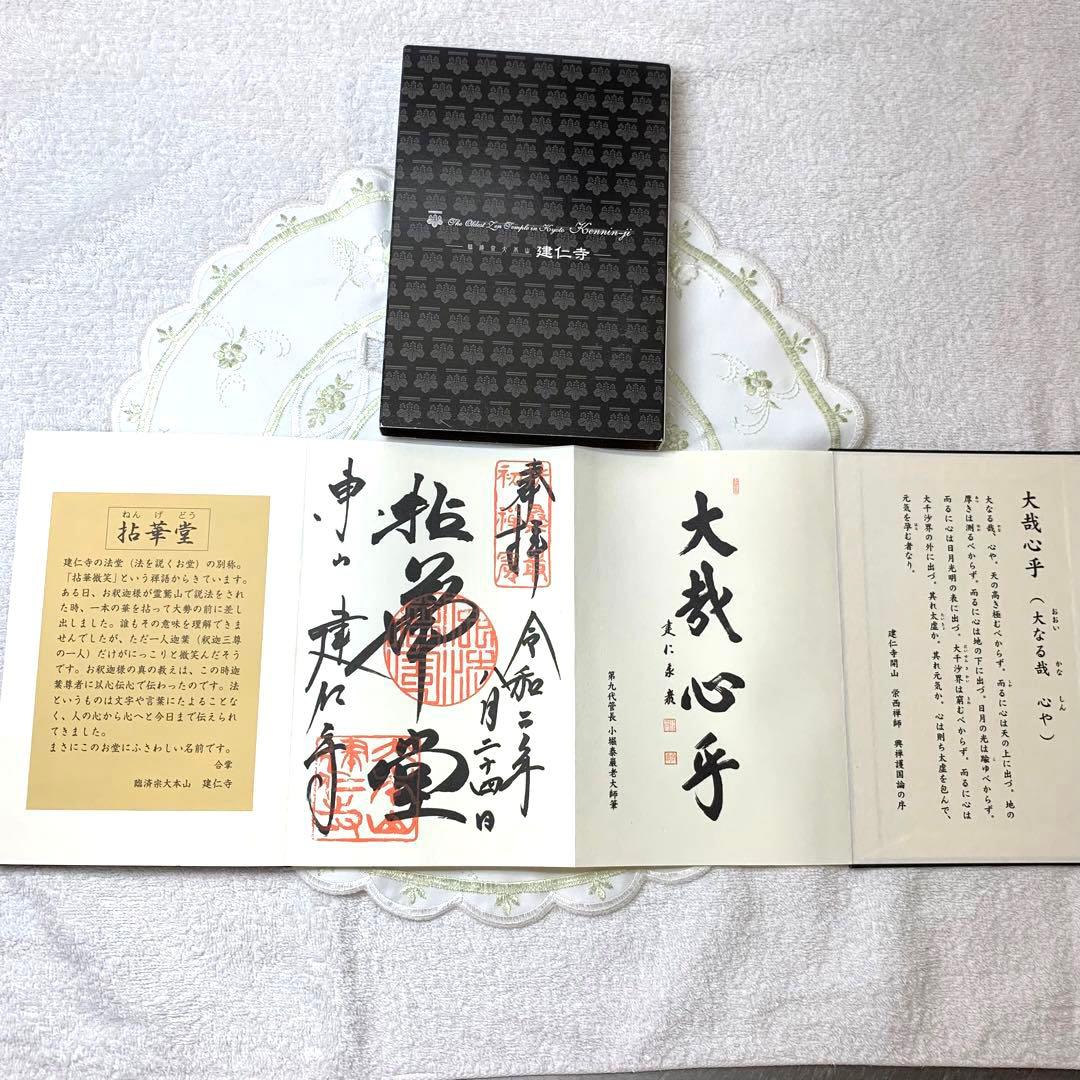 The Oldest Zen Temple in Kyoto Kennin-ji
臨済宗大本山 建仁寺
大哉心乎(大なる哉 心や)
おおい かな しん
大なる哉、心や。天の高き極むべからず。而るに心は天の上に出づ。地の
厚きは測るべからず。而るに心は地の下に出づ。日月の光は踰ゆべからず。
而るに心は日月光明の表に出づ。大千沙界は窮むべからず。而るに心は
大千沙界の外に出づ。其れ太虚か。其れ元気か。心は則ち太虚を包んで、
元気を孕む者なり。
建仁寺開山 栄西禅師 興禅護国論の序
大哉心乎
建仁永巌
第九代管長 小堀泰巌老大師筆
奉拝 令和二年八月二十四日
拈華堂
東山 建仁寺
ねんげどう
拈華堂
建仁寺の法堂(法を説くお堂)の別称。
「拈華微笑」という禅語からきています。
ある日、お釈迦様が霊鷲山で説法をされ
た時、一本の華を拈って大勢の前に差し
出しました。誰もその意味を理解できま
せんでしたが、ただ一人迦葉(釈迦三尊
の一人)だけがにっこりと微笑んだそう
です。お釈迦様の真の教えは、この時迦
葉尊者に以心伝心で伝わったのです。法
というものは文字や言葉にたよることな
く、人の心から心へと今日まで伝えられ
てきました。
まさにこのお堂にふさわしい名前です。
合掌
臨済宗大本山 建仁寺